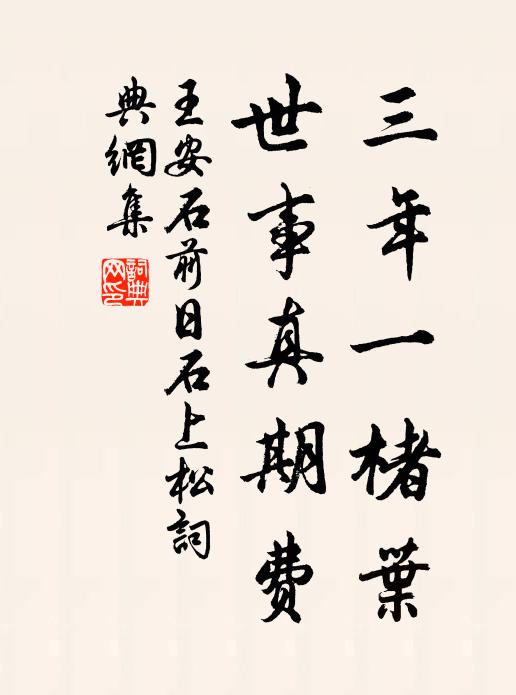 三年一楮葉
世事真期費
王安石前日石上松詞
典網集
詞典網印